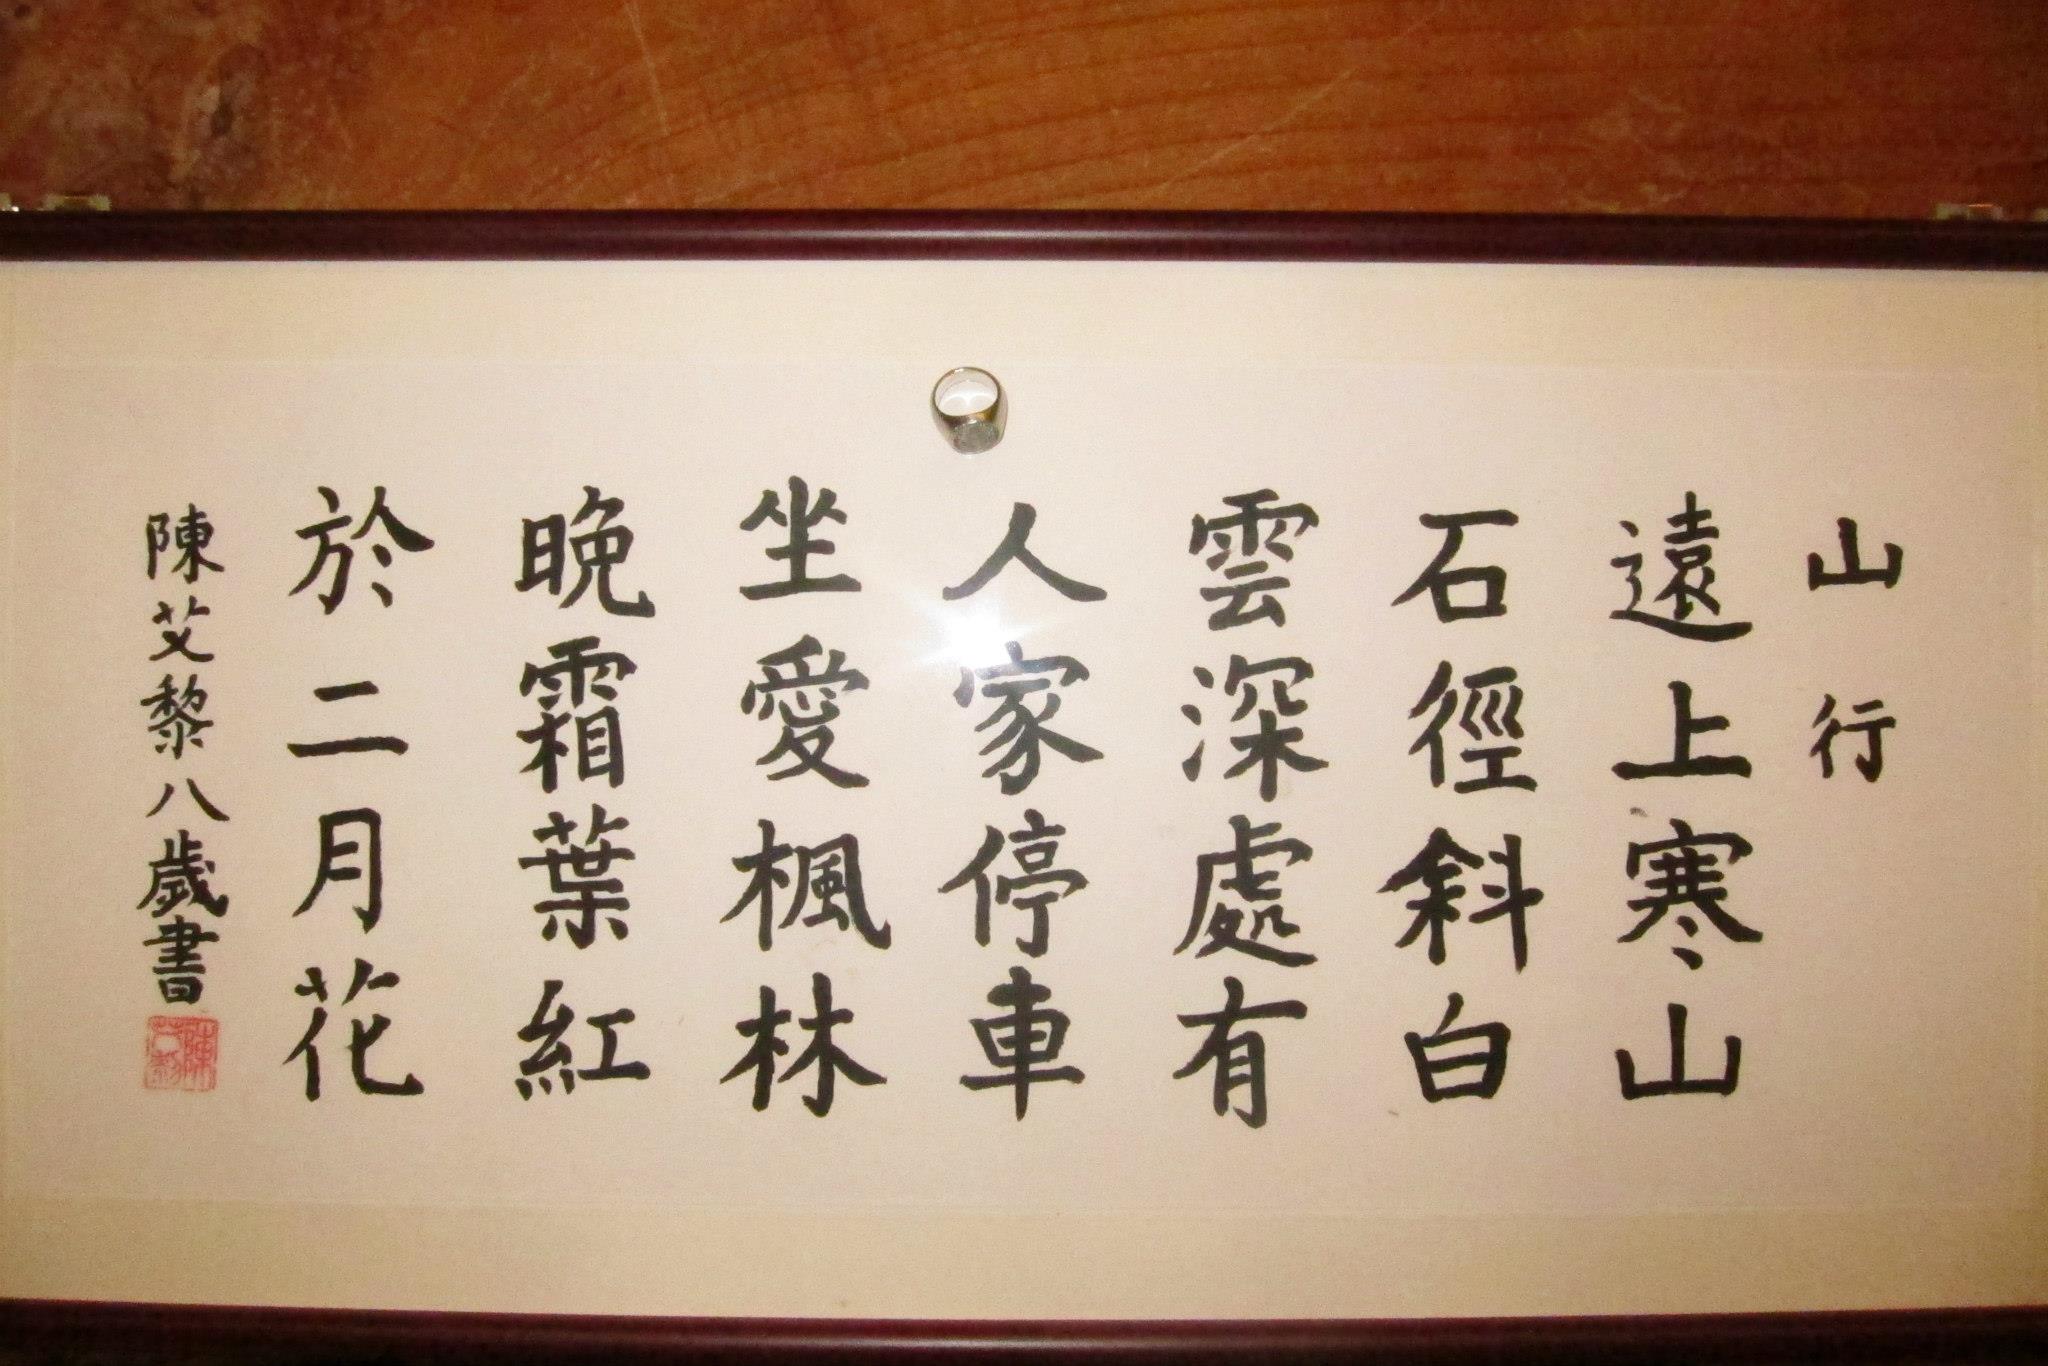 山行
遠上寒山
石徑斜白
雲深處有
人家停車
坐愛楓林
晚霜葉紅
於二月花
陳艾黎八歲書